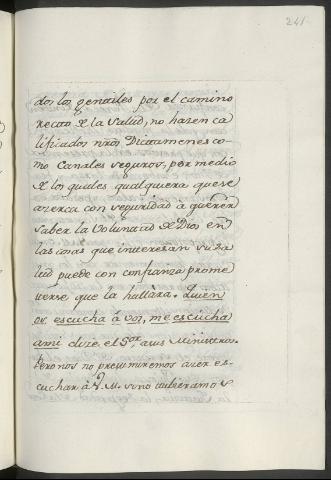 241.
dos los gentiles por el camino
recto de la salud, no hazen ca
lificados nr̃os Dictamenes co-
mo Canales seguros, por medio
de los quales qualquiera que se
azerca con seguridad à querer
saber la Voluntad de Dios en
las cosas que interesan su sa
lud puede con confianza prome
terse que la hallàra. Quien
os escucha à vos, me escucha
ami dize el S.or a sus Ministros.
Pero nos no presumiremos azer es-
cuchar à V. M. sino cubieramos